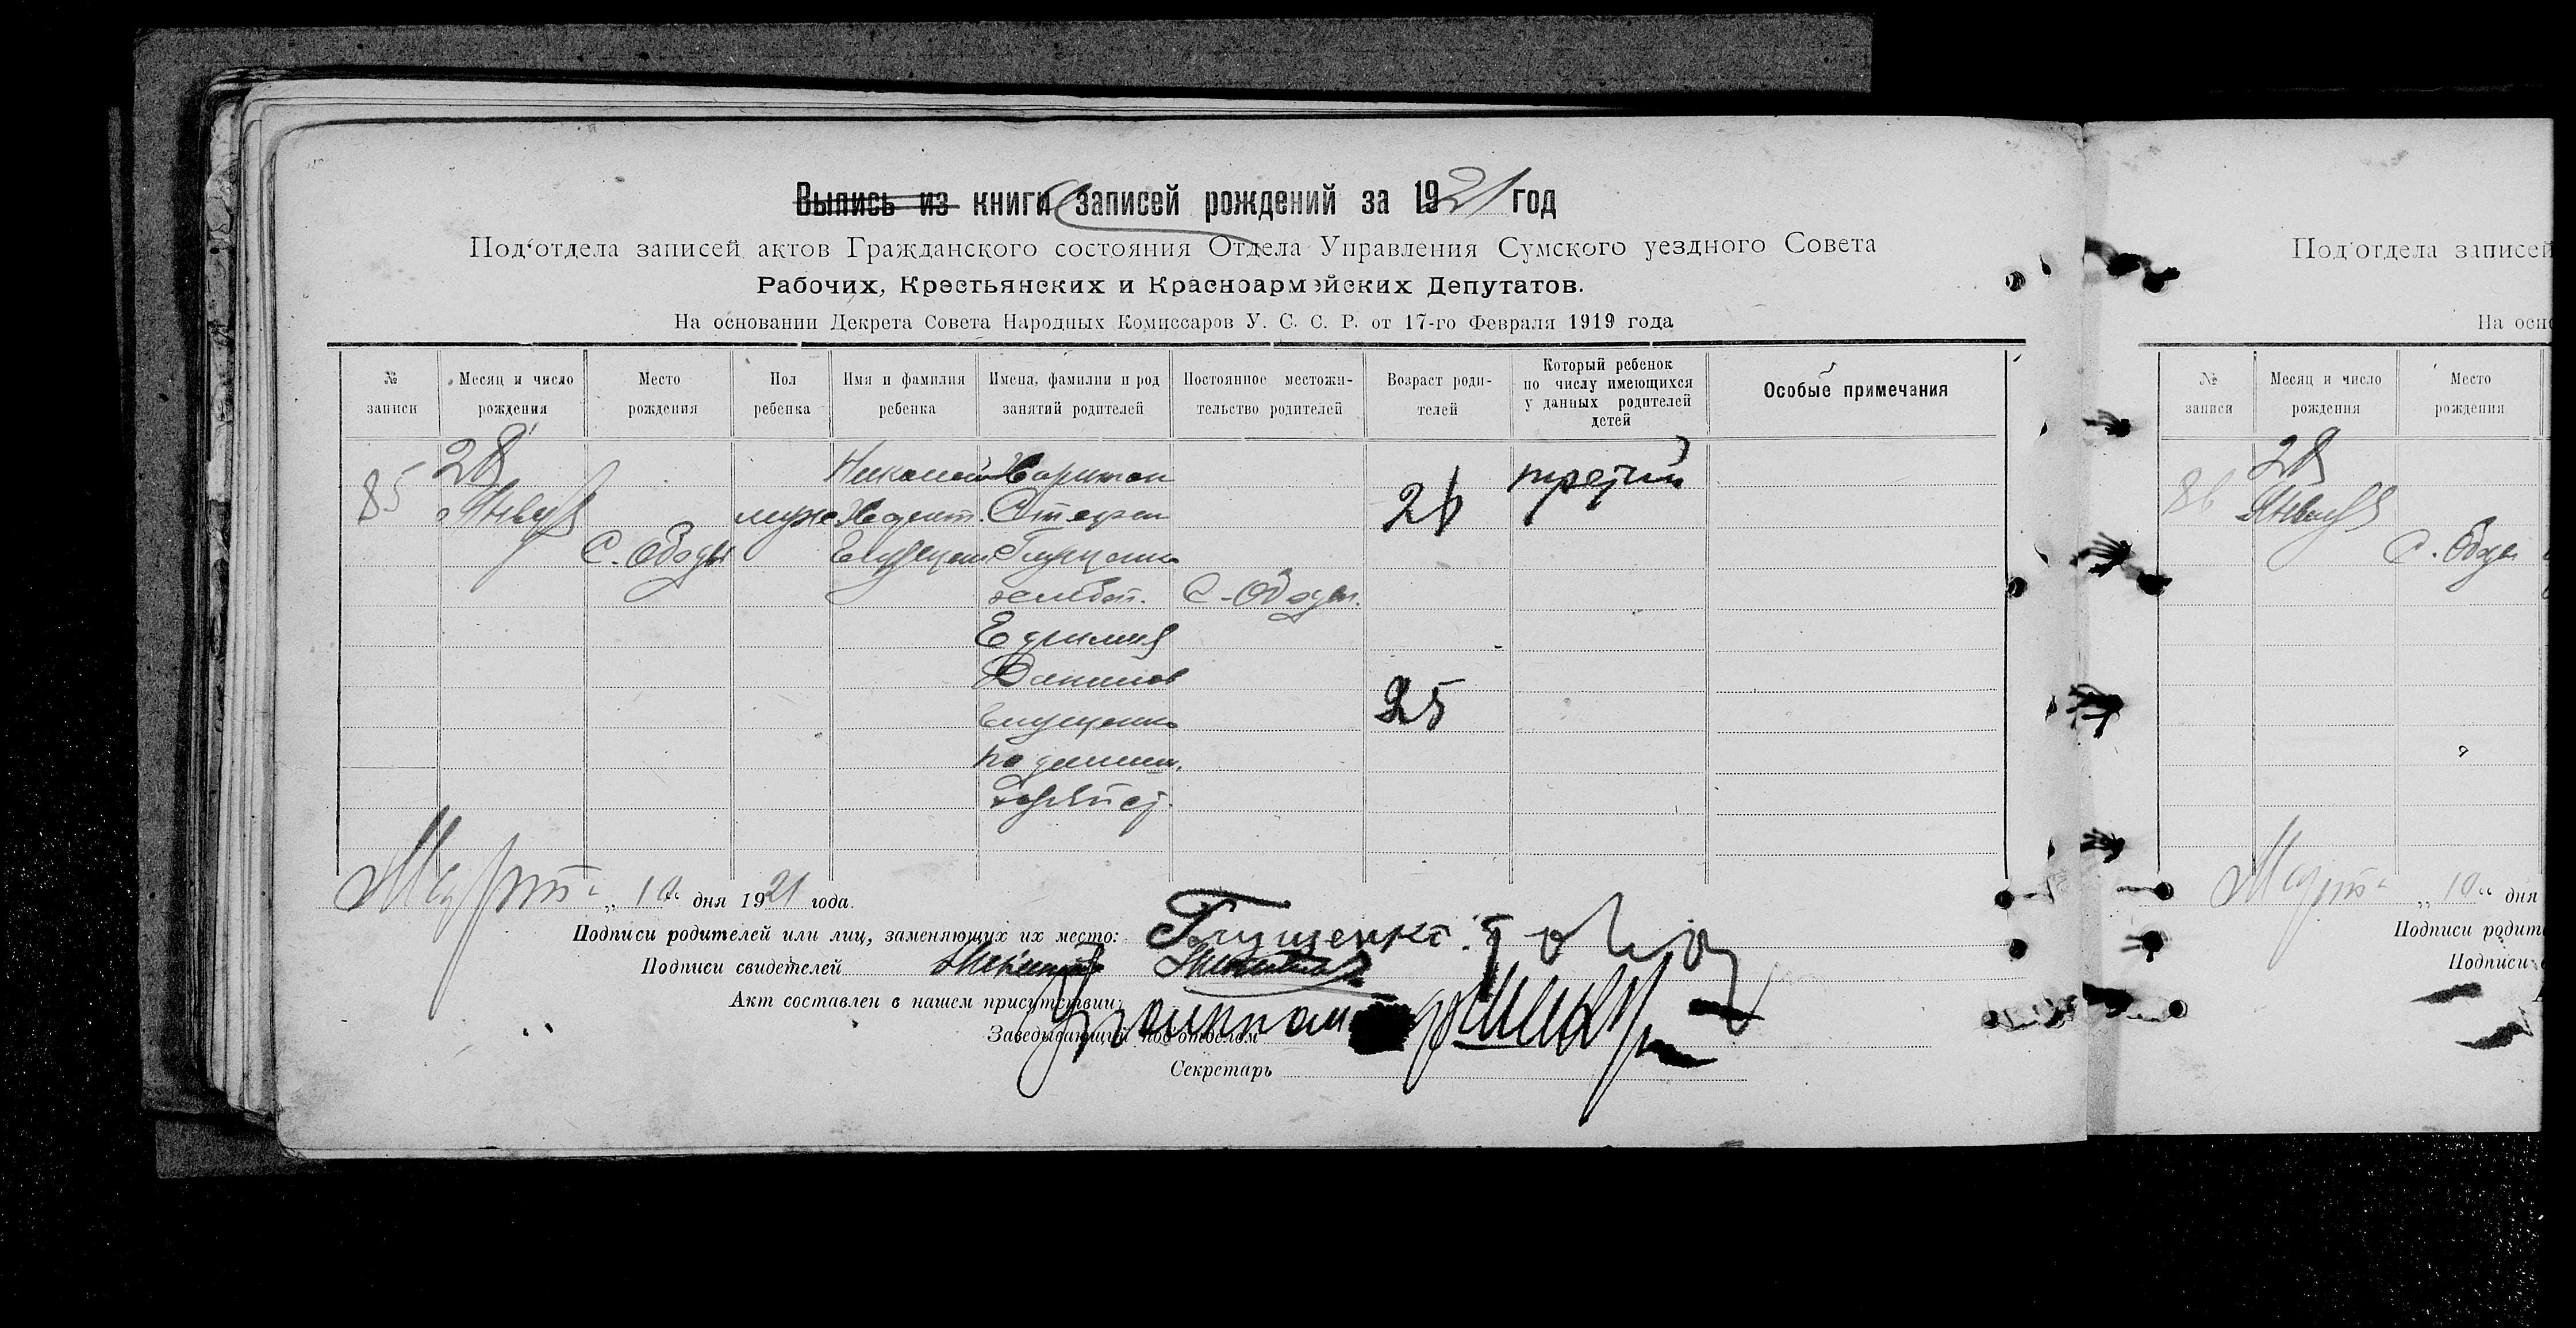 Выпись из книги записей рождений за 1921 год
Под'отдела записей актов Гражданского состояния Отдела Управления Сумского уездного Совета
Рабочих, Крестьянских и Красноармейских Депутатов.
На основании Декрета Совета Народных Комиссаров У. С. С. Р. от 17-го Февраля 1919 года
№ записи
Месяц и число рождения
Место рождения
Пол ребенка
Имя и фамилия ребенка
Имена, фамилии и род занятий родителей
Постоянное местожительство родителей
Возраст родителей
Который ребенок по числу имеющихся у данных родителей детей
Особые примечания
85
28
Январ
С. Ободы
муж
Николай
Харитон
Стефан
Глущенко
С. Ободы
Данилов
Глущенко
26
25
третий
Март „10“ дня 1921 года.
Подписи родителей или лиц, заменяющих их место: Глущенко
Подписи свидетелей
Акт составлен в нашем присутствии:
Заведывающий под'отделом
Секретарь
Под'отдела записей
На осно
№ записи
Месяц и число рождения
Место рождения
86
28
Январ
С. Ободы
Март „10“ дня
Подписи родит
Подписи